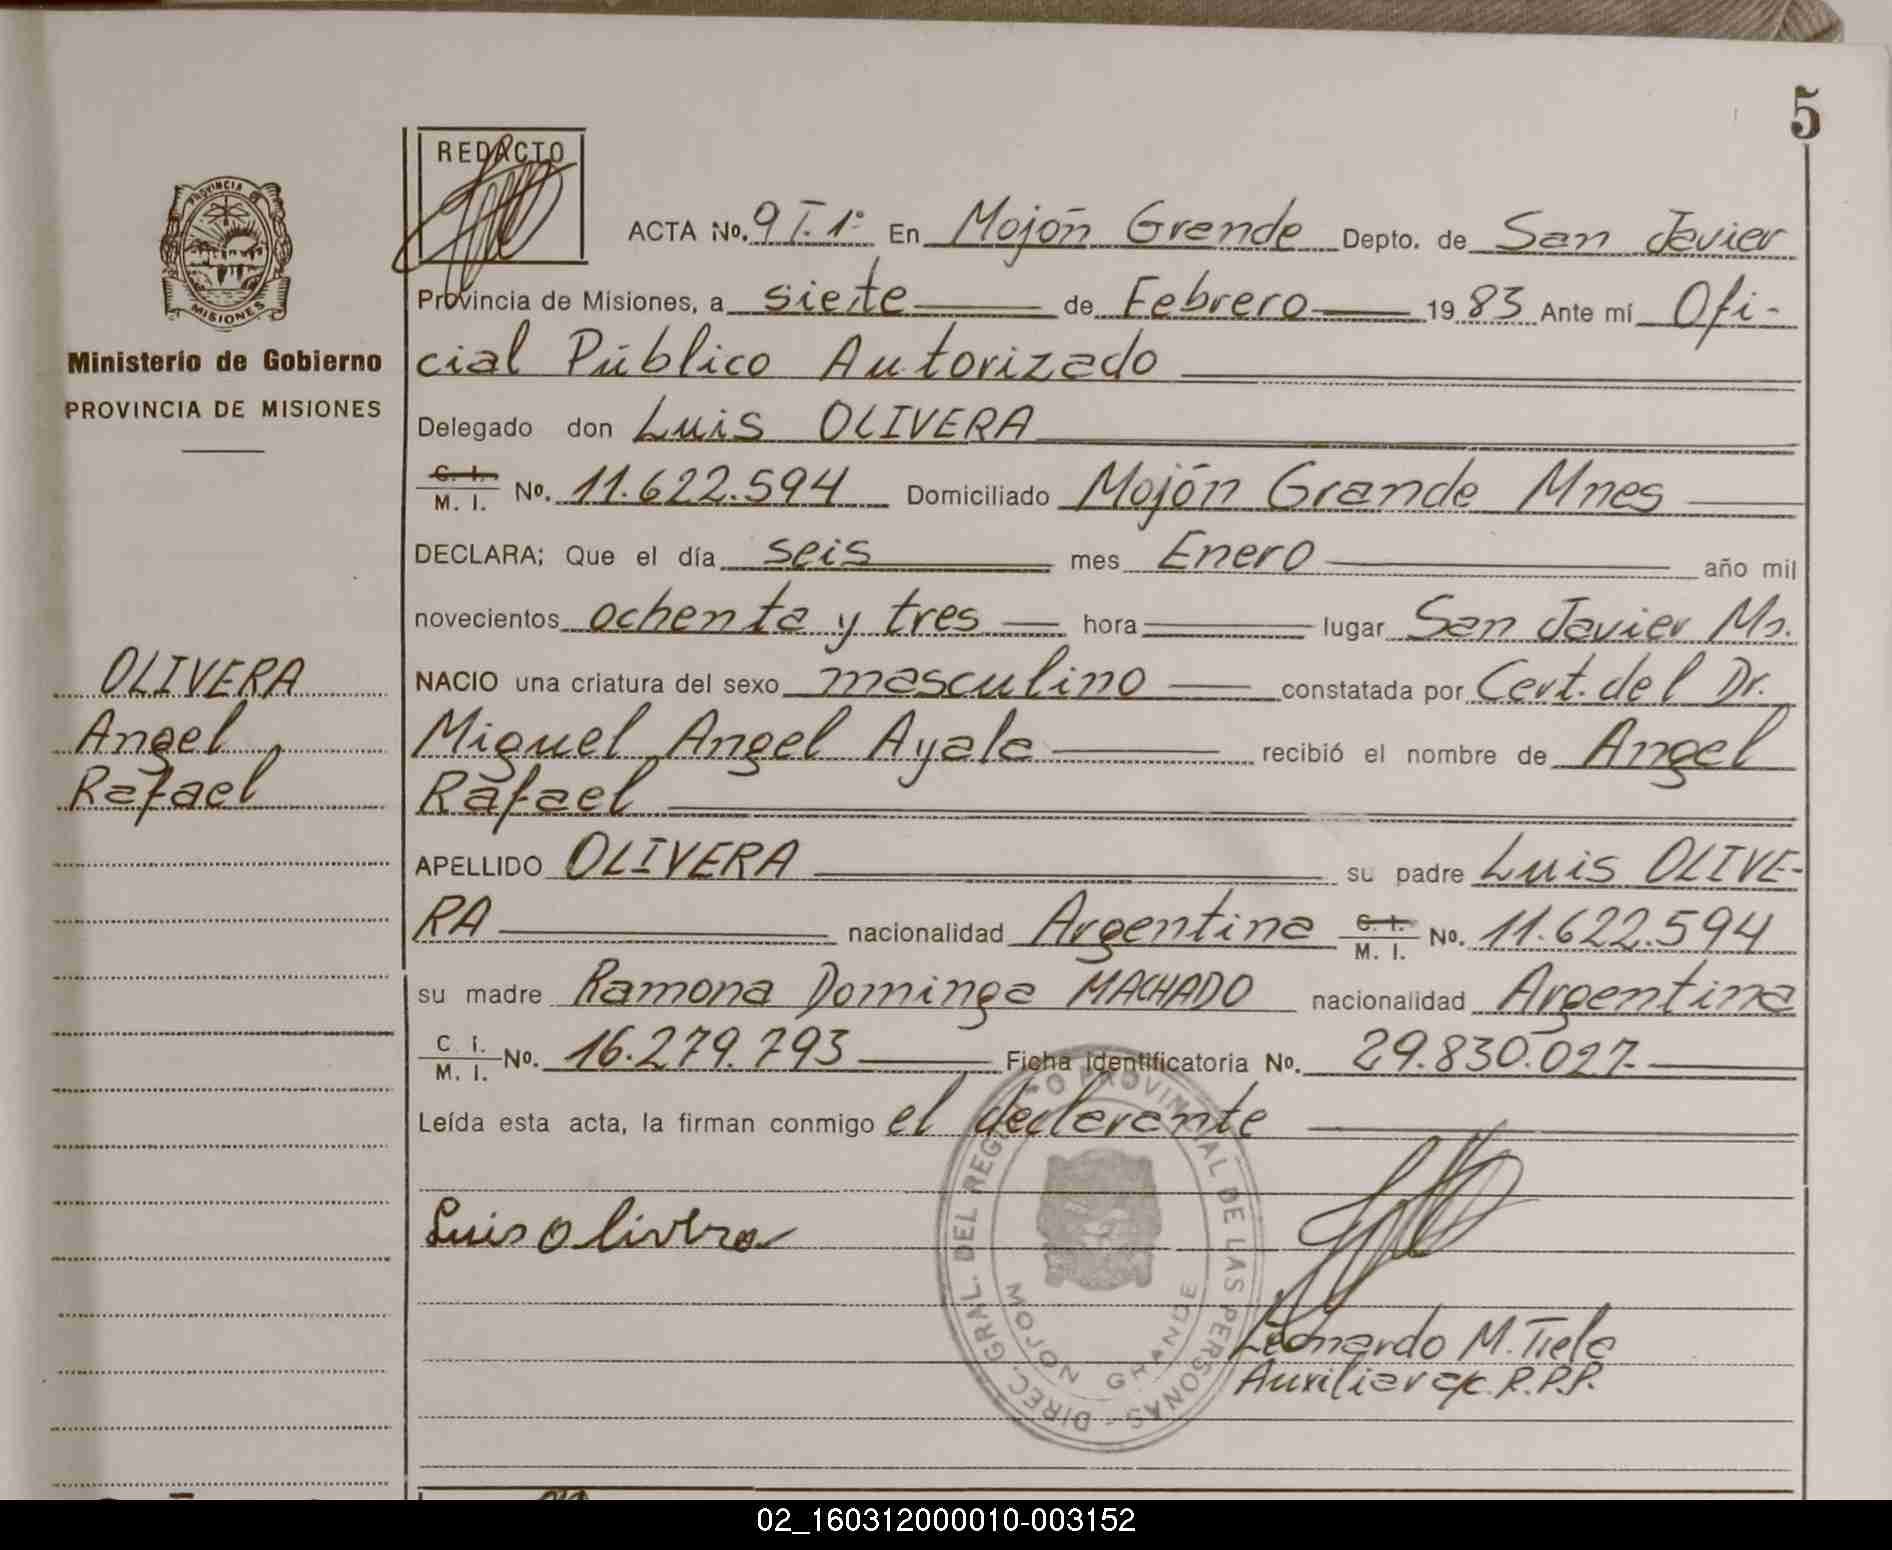 5
REDACTO
PROVINCIA
MISIONES
Ministerio de Gobierno
PROVINCIA DE MISIONES
OLIVERA
Angel
Rafael
ACTA No. 9 T. 1º En Mojón Grande Depto. de San Javier
Provincia de Misiones, a siete de Febrero 1983 Ante mí Ofi-
cial Público Autorizado
Delegado don Luis OLIVERA
C. I. / M. I. No. 11.622.594 Domiciliado Mojón Grande Mnes
DECLARA; Que el día seis mes Enero año mil
novecientos ochenta y tres hora lugar San Javier Ms.
NACIO una criatura del sexo masculino constatada por Cert. del Dr.
Miguel Angel Ayala recibió el nombre de Angel
Rafael
APELLIDO OLIVERA su padre Luis OLIVE-
RA nacionalidad Argentina C. I. / M. I. No. 11.622.594
su madre Ramona Dominga MACHADO nacionalidad Argentina
C. I. / M. I. No. 16.279.793 Ficha identificatoria No. 29.830.027.
Leída esta acta, la firman conmigo el declarante
Luis Olivera
DIREC. GRAL. DEL REGISTRO PROVINCIAL DE LAS PERSONAS -
MOJON GRANDE
Leonardo M.
Auxiliar R.P.P.
02_160312000010-003152